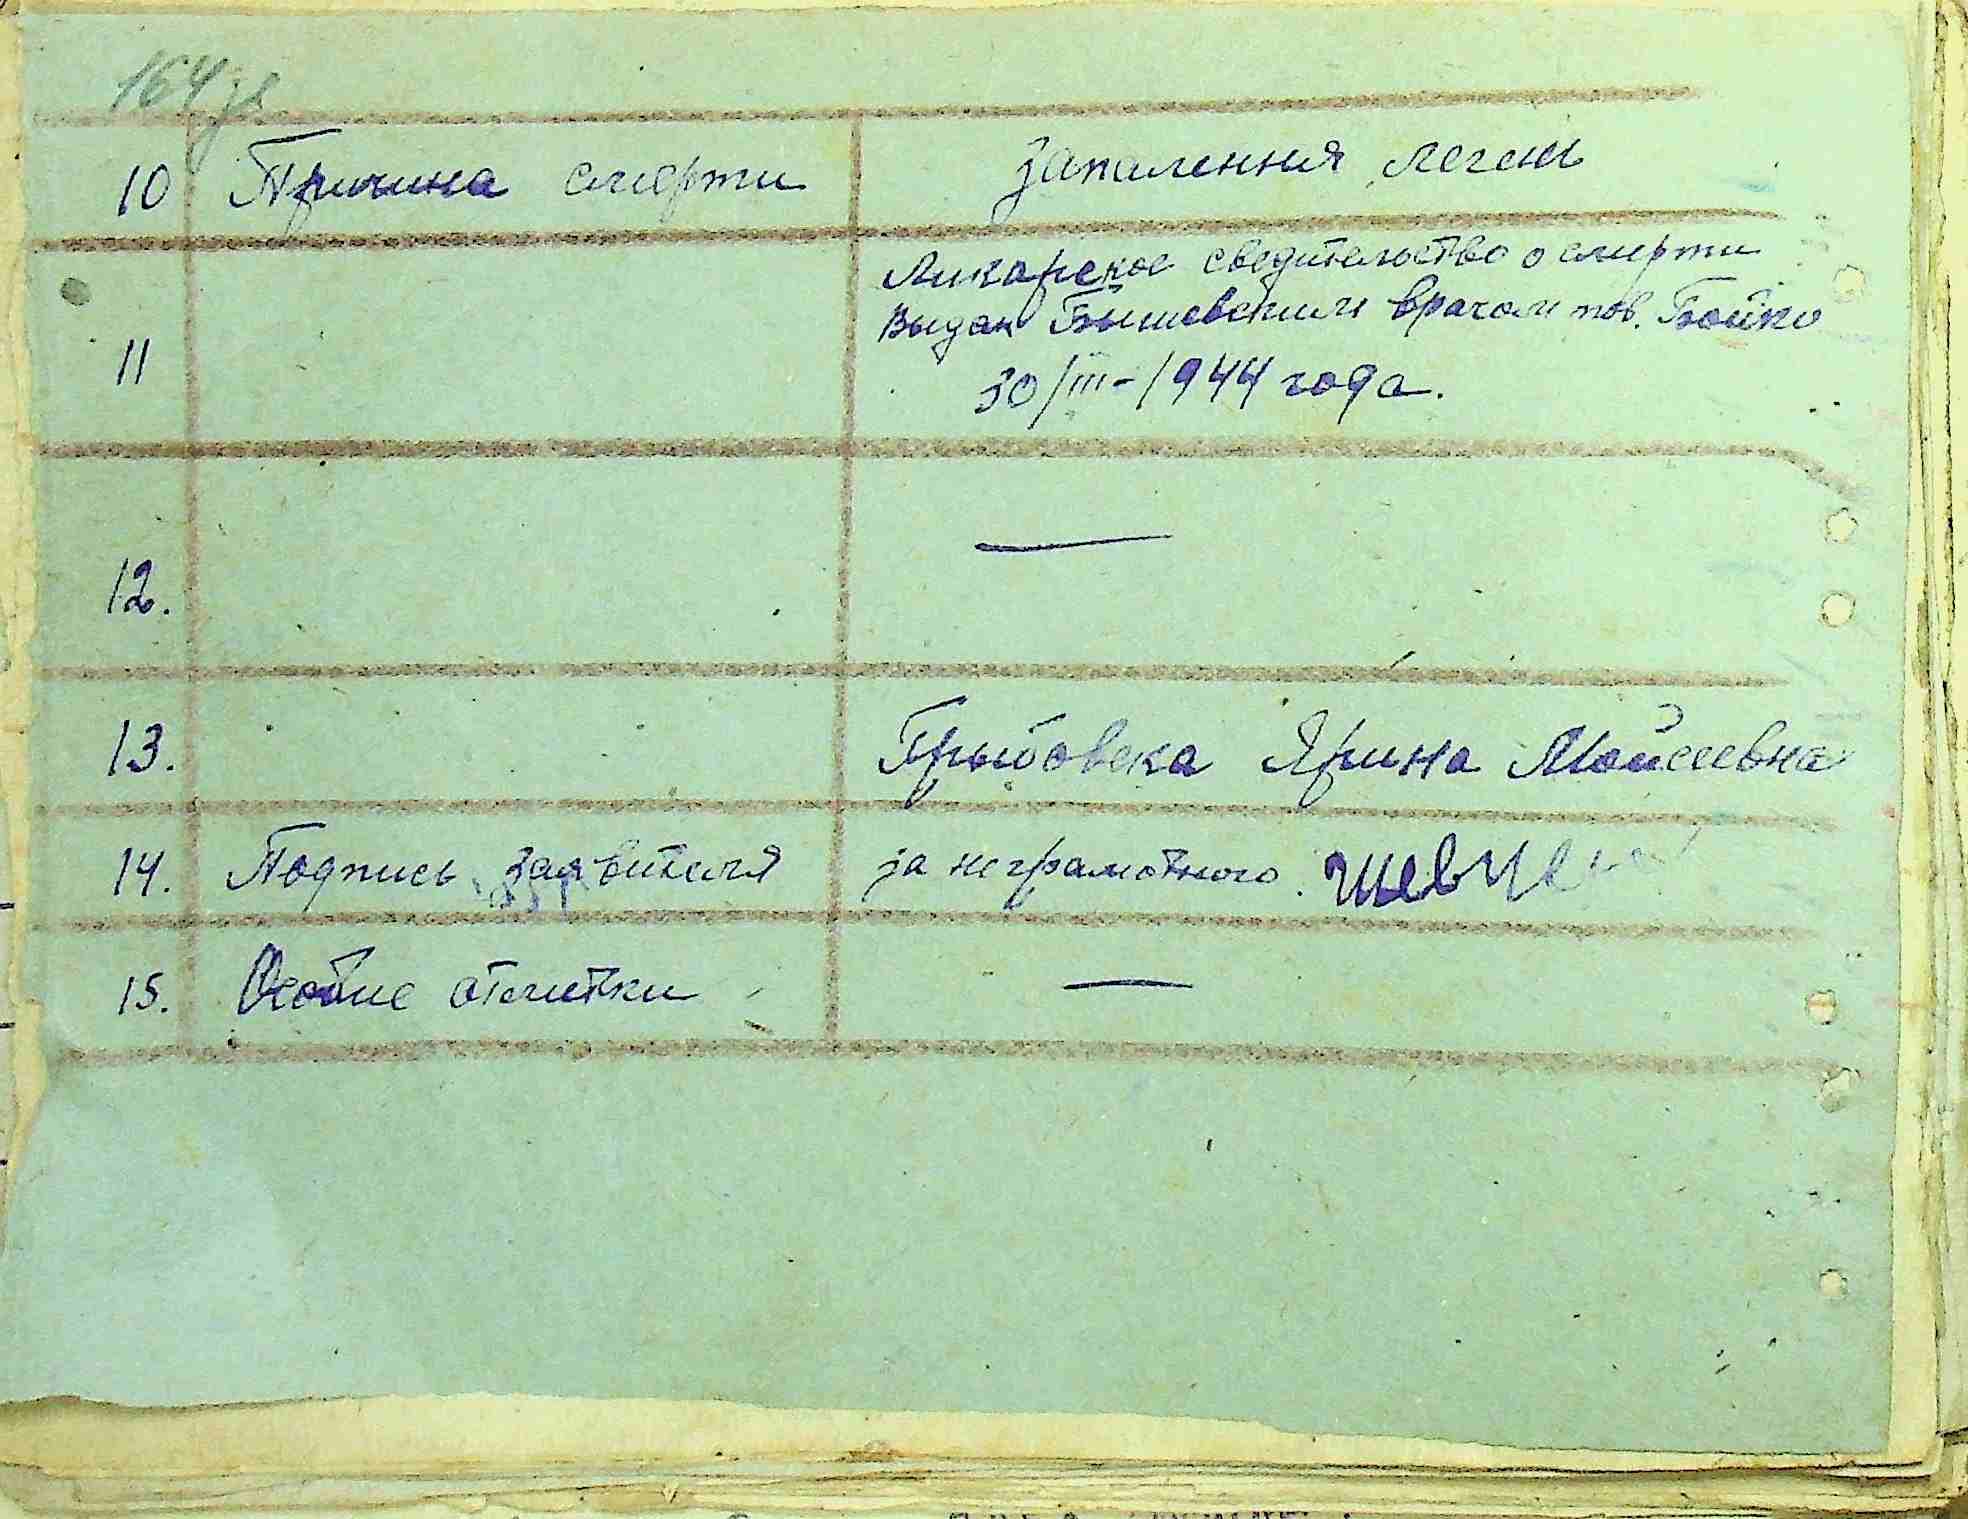 164зв
10 Причина смерти запалення леген
Ликарское сведительство о смерти
Выдан Бышевским врачом тов. Бойко
11
30/III-1944 года.
12.
13. Грыбовска Ярина Мойсеевна
14. Подпись заявителя за неграмотного
15. Особие отметки